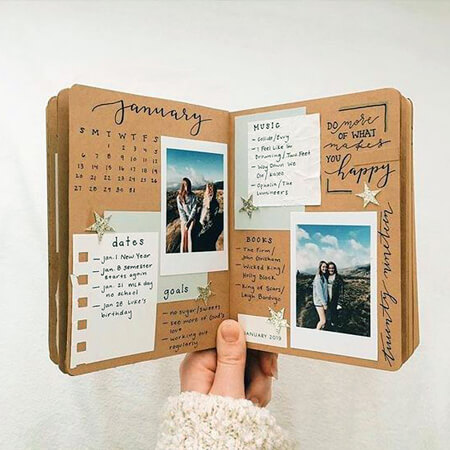 January
S M T W T F S
1 2 3 4 5
6 7 8 9 10 11 12
13 14 15 16 17 18 19
20 21 22 23 24 25 26
27 28 29 30 31
dates
- Jan. 1 New Year
- Jan. 8 Semester
starts again
- Jan. 21 MLK day
no school
- Jan 28 Luke's
birthday
goals
- no sugar/sweets
- see more of God's
love
- working out
regularly
MUSIC
- Collide/Envy
- I Feel Like I'm
Drowning/Two Feet
- Way Down We
Go/Kaleo
- Ophelia/The
Lumineers
BOOKS
- The Firm/
John Grisham
- Wicked King/
Holly Black
- King of Scars/
Leigh Bardugo
JANUARY 2019
DO more
OF WHAT
makes
YOU
happy
twenty nineteen